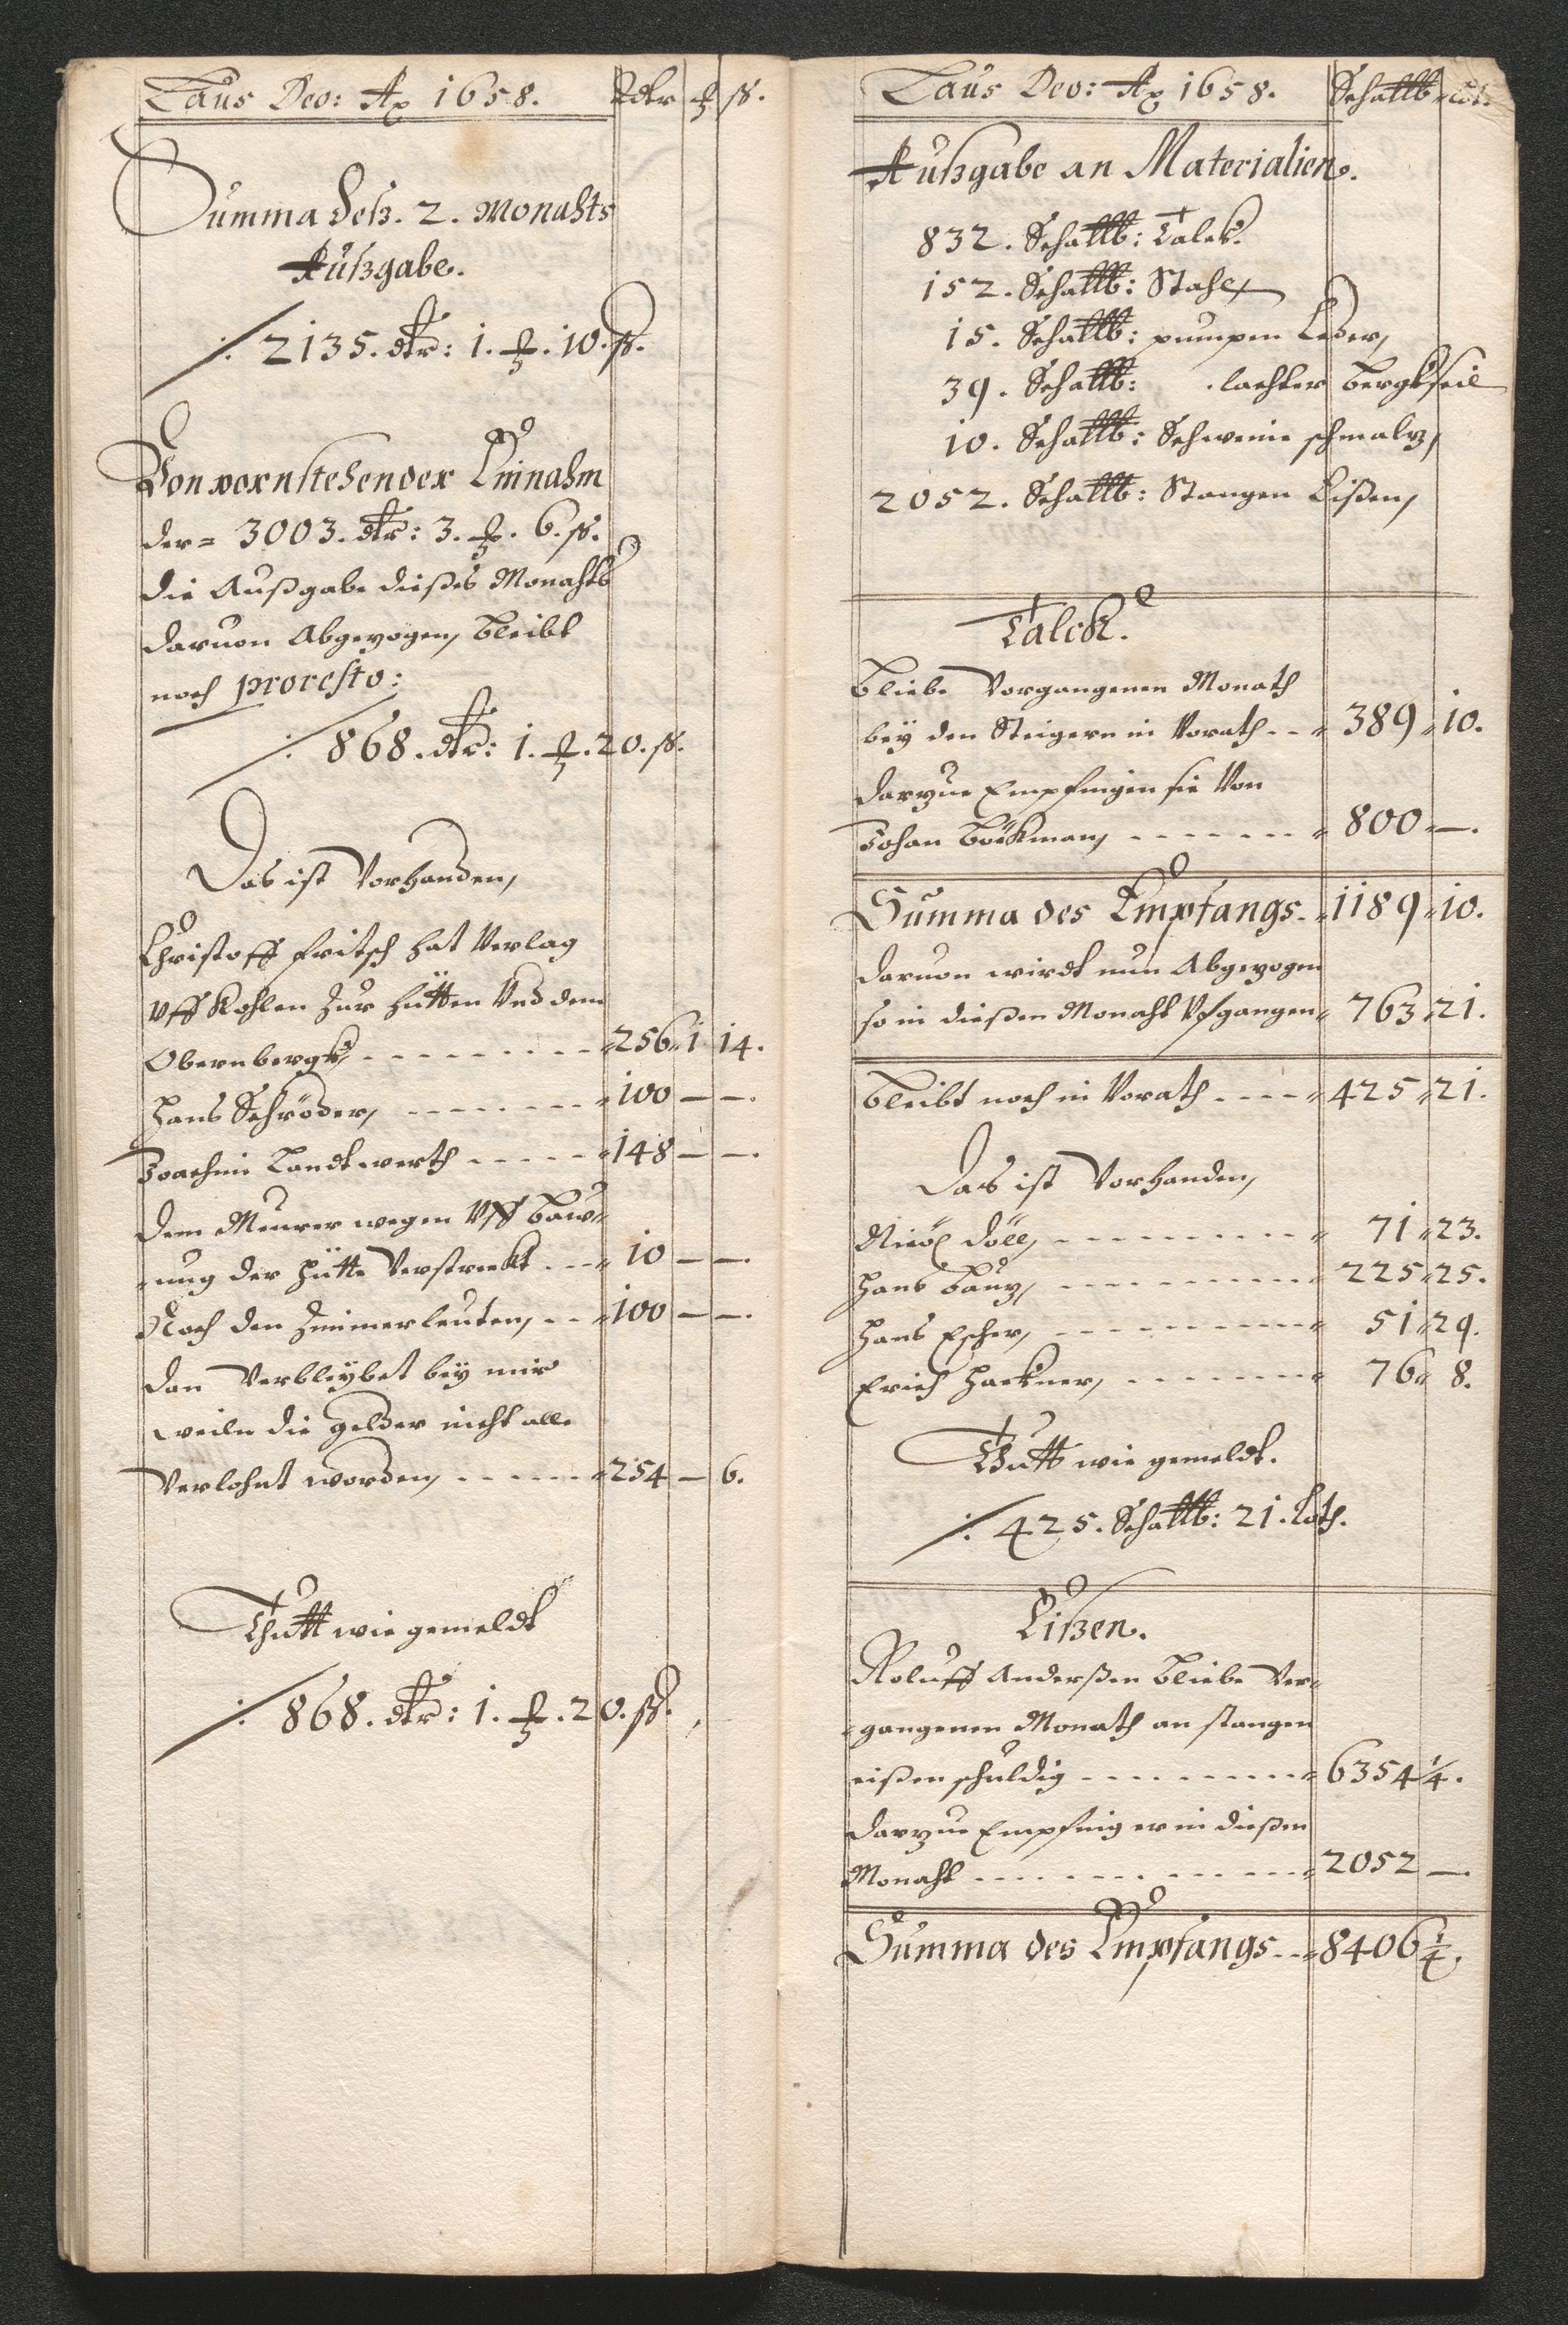 Laus Deo: Aō 1658. Rdlr ꝗ ß.
Summa deß. 2. Monahts
Außgabe.
⁒ 2135. dlr: 1. ꝗ. 10. ß.
Von vornstehender Einnahm
der = 3003. dlr: 3. ꝗ. 6. ß.
die Außgabe dießes Monahts
daruon Abgezogen, bleibt
noch pro resto:
⁒ 868. dlr: 1. ꝗ. 20. ß.
Das ist Vorhanden,
Christoff Fritsch hat Verlag
Vff Kohlen Zur hütten Und dem
Obernbergk, - - - - - - - - - 256 " 1 14.
Hans Schröder, - - - - - - - 100 — —.
Joachim Landtwerth - - - - - 148 — —.
Dem Meurer wegen Vff Bauw-
-ung der Hütte Verstreckt - - - 10 — —.
Noch den Zimmerleuten, - - - 100 — —.
Dan Verbleybet bey mir
weiln die gelder nicht alle
Verlohnt worden, - - - - - - 254 — 6.
Thutt wie gemeldt
⁒ 868. dlr: 1. ꝗ. 20. ß.
Laus Deo: Aō 1658. Schallb " Lot.
Außgabe an Materialien.
832. Schallb: Talck.
152. Schallb: Stahl,
15. Schallb: pumpen Leder,
39. Schallb: . lachter bergkseil
10. Schallb: Schweine schmaltz,
2052. Schallb: Stangen Eißen,
Talck.
Bliebe Vorgangenen Monath
bey den Steigern in Vorath - - " 389 " 10.
Darzue Empfingen sie Von
Johan Böckman, - - - - - - - " 800 " —.
Summa des Empfangs - " 1189 " 10.
Daruon wirdt nun Abgezogen
so in dießen Monaht Vfgangen " 763 " 21.
Bleibt noch in Vorath - - - - " 425 " 21.
Das ist Vorhanden,
Nicol Döll, - - - - - - - - - " 71 " 23.
Hans Bauz, - - - - - - - - - " 225 " 25.
Hans Escher, - - - - - - - - - " 51 " 29.
Erich Hackner, - - - - - - - " 76 " 8.
Thutt wie gemeldt.
⁒ 425. Schallb: 21. Loth.
Eißen.
Roluff Anderßen bliebe Ver-
-gangenen Monath an stangen
eißen schuldig - - - - - - - - " 6354 1/4.
Darzue Empfing er in dießen
Monaht - - - - - - - - - - - " 2052 —.
Summa des Empfangs - - " 8406 1/4.